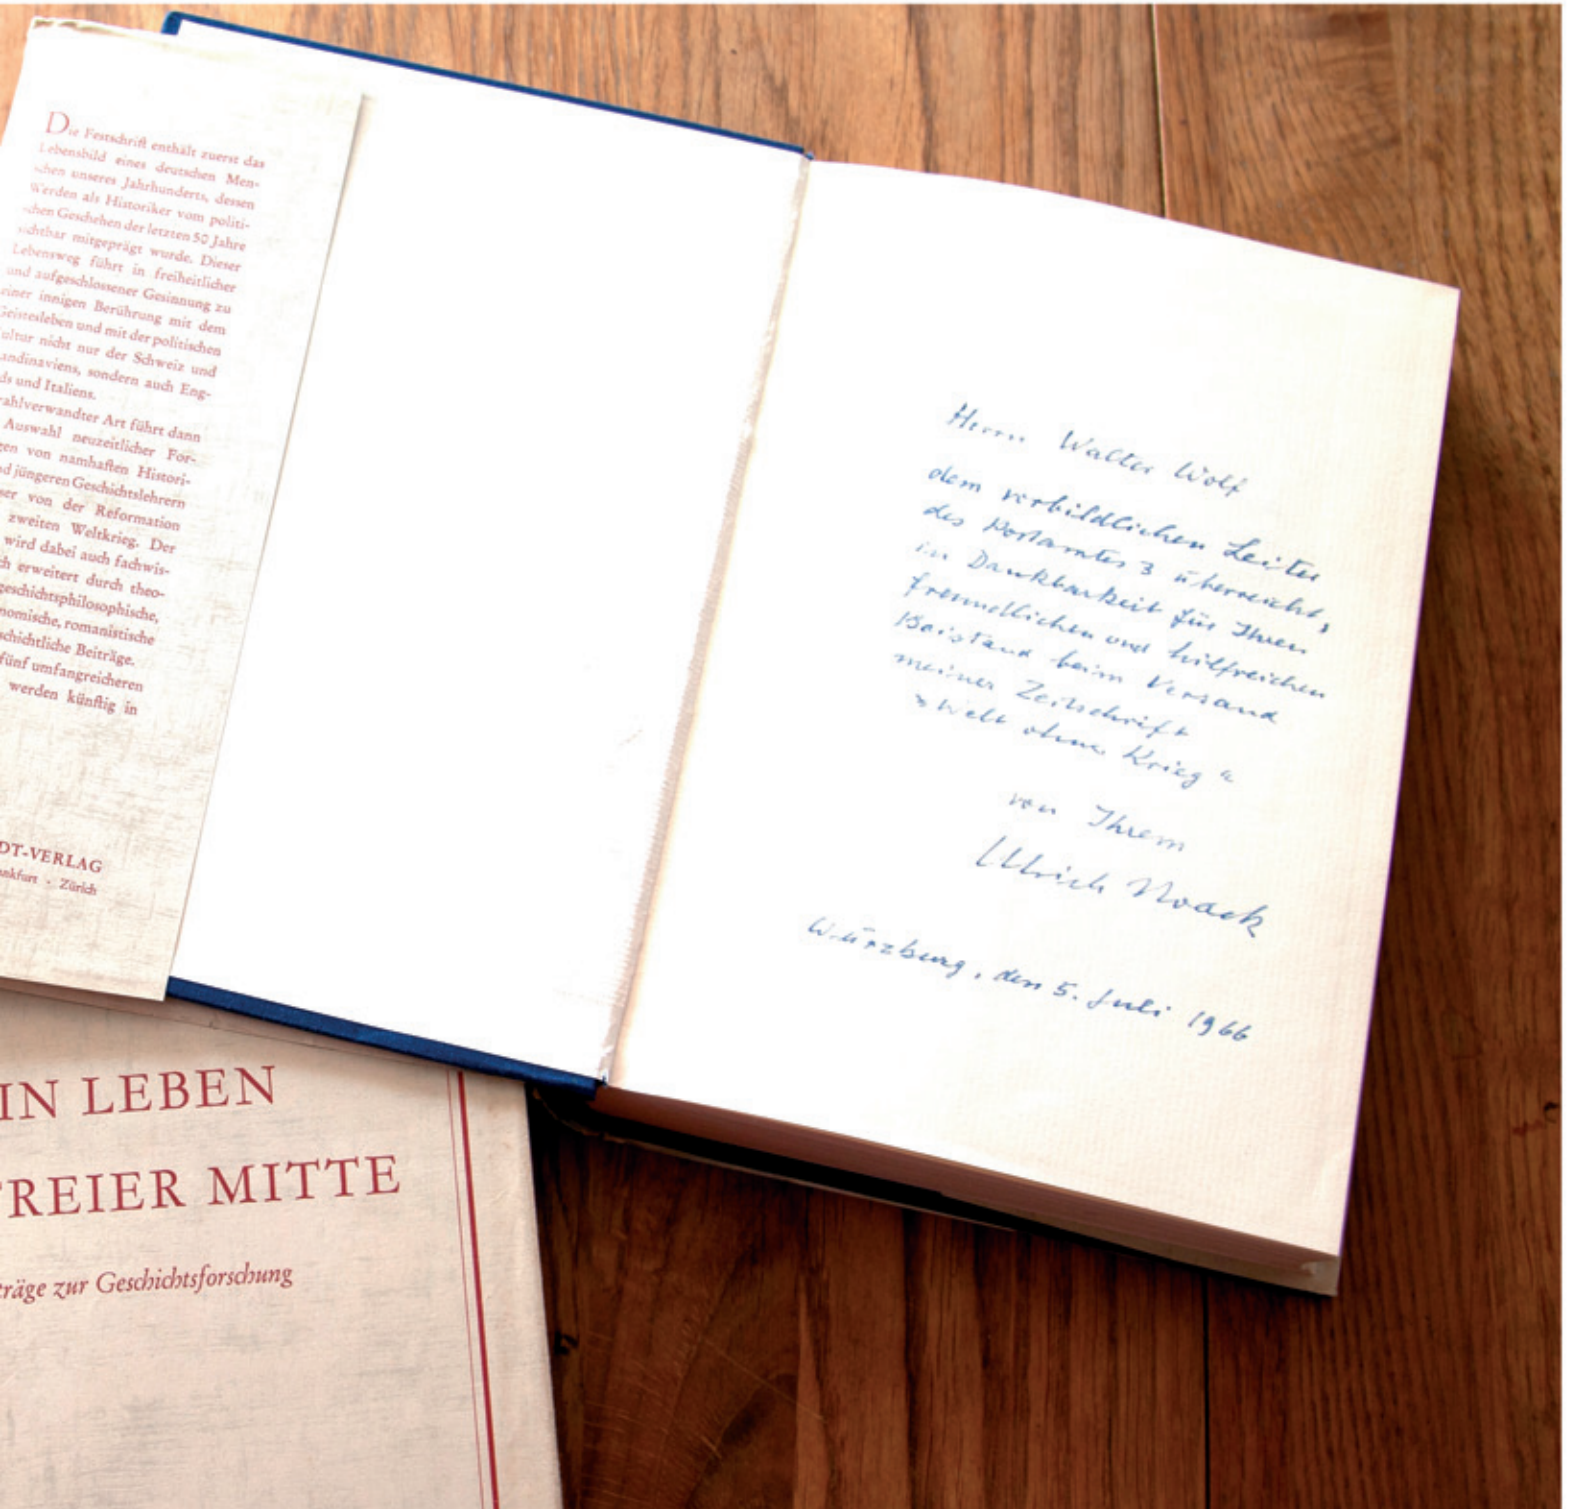 Die Festschrift enthält zuerst das
Lebensbild eines deutschen Men-
schen unseres Jahrhunderts, dessen
Werden als Historiker vom politi-
schen Geschehen der letzten 50 Jahre
sichtbar mitgeprägt wurde. Dieser
Lebensweg führt in freiheitlicher
und aufgeschlossener Gesinnung zu
einer innigen Berührung mit dem
Geistesleben und mit der politischen
ultur nicht nur der Schweiz und
andinaviens, sondern auch Eng-
ds und Italiens.
ahlverwandter Art führt dann
Auswahl neuzeitlicher For-
gen von namhaften Histori-
d jüngeren Geschichtslehrern
ser von der Reformation
zweiten Weltkrieg. Der
wird dabei auch fachwis-
ch erweitert durch theo-
geschichtsphilosophische,
nomische, romanistische
schichtliche Beiträge.
fünf umfangreicheren
werden künftig in
DT-VERLAG
nkfurt · Zürich
Herrn Walter Wolf
dem vorbildlichen Leiter
des Postamtes 3 überreicht,
in Dankbarkeit für Ihren
freundlichen und hilfreichen
Beistand beim Versand
meiner Zeitschrift
»Welt ohne Krieg“
von Ihrem
Ulrich Noack
Würzburg, den 5. Juli 1966
IN LEBEN
FREIER MITTE
träge zur Geschichtsforschung